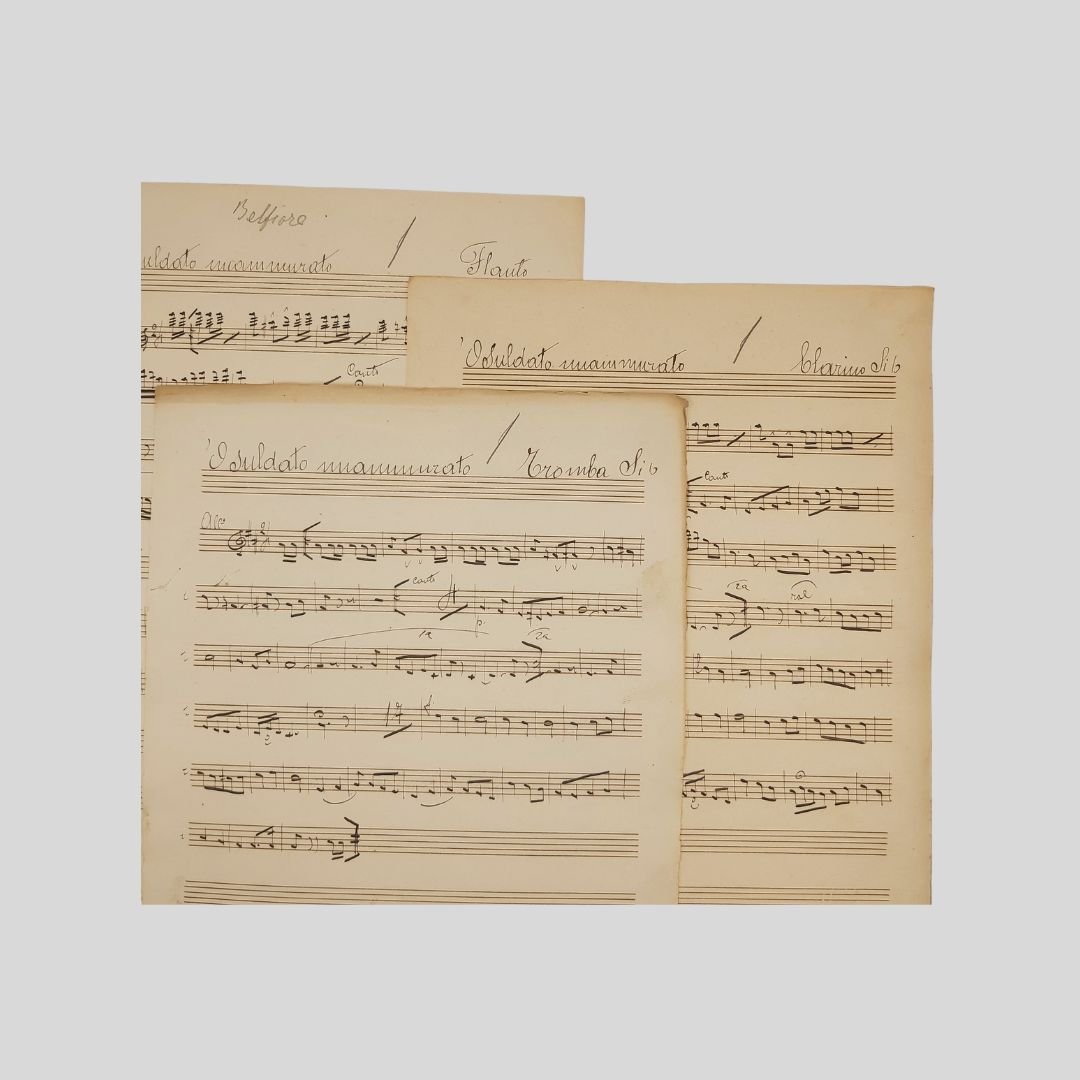 Belfiore
uldato nnammurato / Flauto
Canto
'O suldato nnammurato / Clarino Si b
Canto
2a
ral
'O suldato nnammurato / Tromba Si b
All°
canto
p
1a 2a